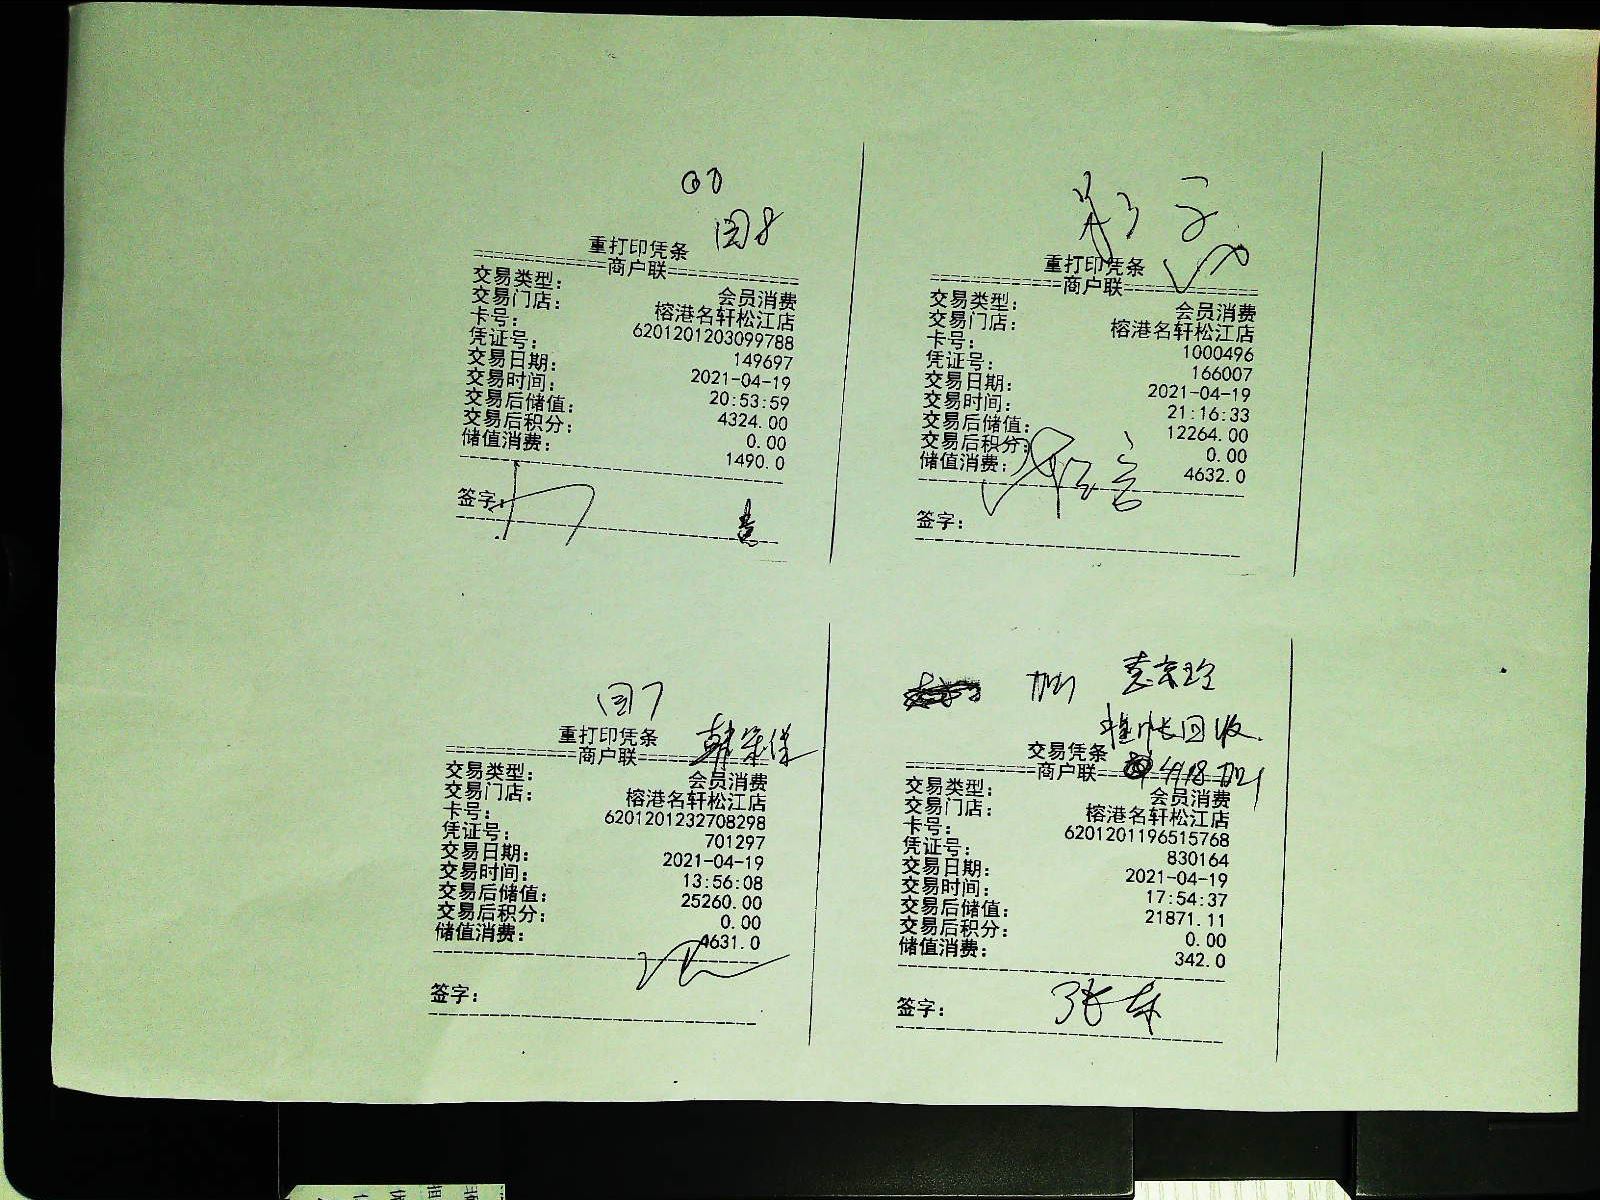 园8
重打印凭条
==========商户联==========
交易类型: 会员消费
交易门店: 榕港名轩松江店
卡号: 6201201203099788
凭证号: 149697
交易日期: 2021-04-19
交易时间: 20:53:59
交易后储值: 4324.00
交易后积分: 0.00
储值消费: 1490.0
签字:
重打印凭条
==========商户联==========
交易类型: 会员消费
交易门店: 榕港名轩松江店
卡号: 1000496
凭证号: 166007
交易日期: 2021-04-19
交易时间: 21:16:33
交易后储值: 12264.00
交易后积分: 0.00
储值消费: 4632.0
签字:
园7
重打印凭条
==========商户联==========
交易类型: 会员消费
交易门店: 榕港名轩松江店
卡号: 6201201232708298
凭证号: 701297
交易日期: 2021-04-19
交易时间: 13:56:08
交易后储值: 25260.00
交易后积分: 0.00
储值消费: 4631.0
签字:
挂帐回收
交易凭条
==========商户联==========
4/18
交易类型: 会员消费
交易门店: 榕港名轩松江店
卡号: 6201201196515768
凭证号: 830164
交易日期: 2021-04-19
交易时间: 17:54:37
交易后储值: 21871.11
交易后积分: 0.00
储值消费: 342.0
签字: